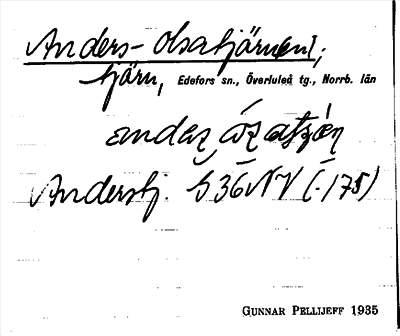 Anders-Olsatjärn(en),
tjärn, Edefors sn., Överluleå tg., Norrb. län
Anderstj. S 36 NV (-175)
GUNNAR PELLIJEFF 1935